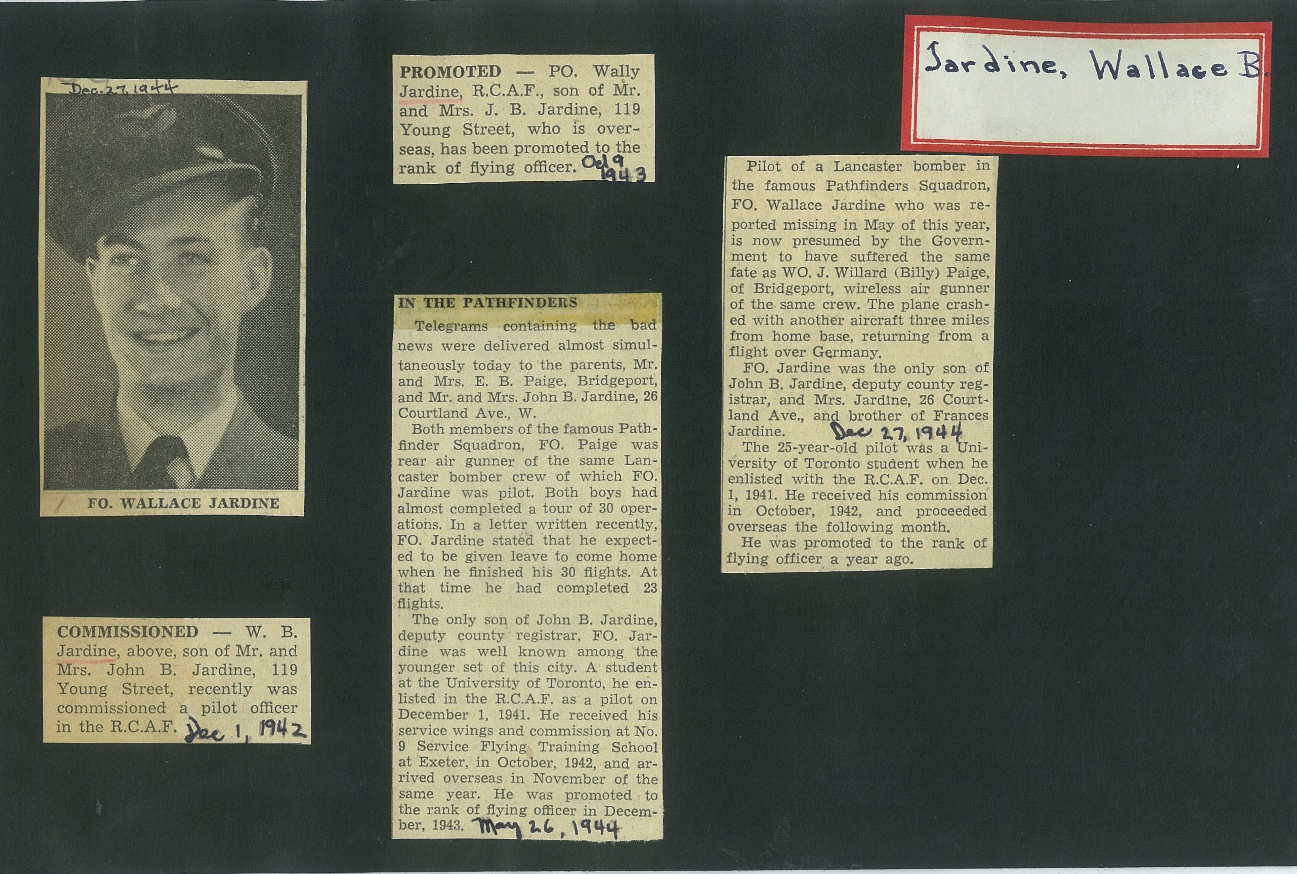 Jardine, Wallace B.
Dec. 27, 1944
FO. WALLACE JARDINE
COMMISSIONED — W. B.
Jardine, above, son of Mr. and
Mrs. John B. Jardine, 119
Young Street, recently was
commissioned a pilot officer
in the R.C.A.F. Dec 1, 1942
PROMOTED — PO. Wally
Jardine, R.C.A.F., son of Mr.
and Mrs. J. B. Jardine, 119
Young Street, who is over-
seas, has been promoted to the
rank of flying officer. Oct 9
1943
IN THE PATHFINDERS
Telegrams containing the bad
news were delivered almost simul-
taneously today to the parents, Mr.
and Mrs. E. B. Paige, Bridgeport,
and Mr. and Mrs. John B. Jardine, 26
Courtland Ave., W.
Both members of the famous Path-
finder Squadron, FO. Paige was
rear air gunner of the same Lan-
caster bomber crew of which FO.
Jardine was pilot. Both boys had
almost completed a tour of 30 oper-
ations. In a letter written recently,
FO. Jardine stated that he expect-
ed to be given leave to come home
when he finished his 30 flights. At
that time he had completed 23
flights.
The only son of John B. Jardine,
deputy county registrar, FO. Jar-
dine was well known among the
younger set of this city. A student
at the University of Toronto, he en-
listed in the R.C.A.F. as a pilot on
December 1, 1941. He received his
service wings and commission at No.
9 Service Flying Training School
at Exeter, in October, 1942, and ar-
rived overseas in November of the
same year. He was promoted to
the rank of flying officer in Decem-
ber, 1943. May 26, 1944
Pilot of a Lancaster bomber in
the famous Pathfinders Squadron,
FO. Wallace Jardine who was re-
ported missing in May of this year,
is now presumed by the Govern-
ment to have suffered the same
fate as WO. J. Willard (Billy) Paige,
of Bridgeport, wireless air gunner
of the same crew. The plane crash-
ed with another aircraft three miles
from home base, returning from a
flight over Germany.
FO. Jardine was the only son of
John B. Jardine, deputy county reg-
istrar, and Mrs. Jardine, 26 Court-
land Ave., and brother of Frances
Jardine. Dec 27, 1944
The 25-year-old pilot was a Uni-
versity of Toronto student when he
enlisted with the R.C.A.F. on Dec.
1, 1941. He received his commission
in October, 1942, and proceeded
overseas the following month.
He was promoted to the rank of
flying officer a year ago.